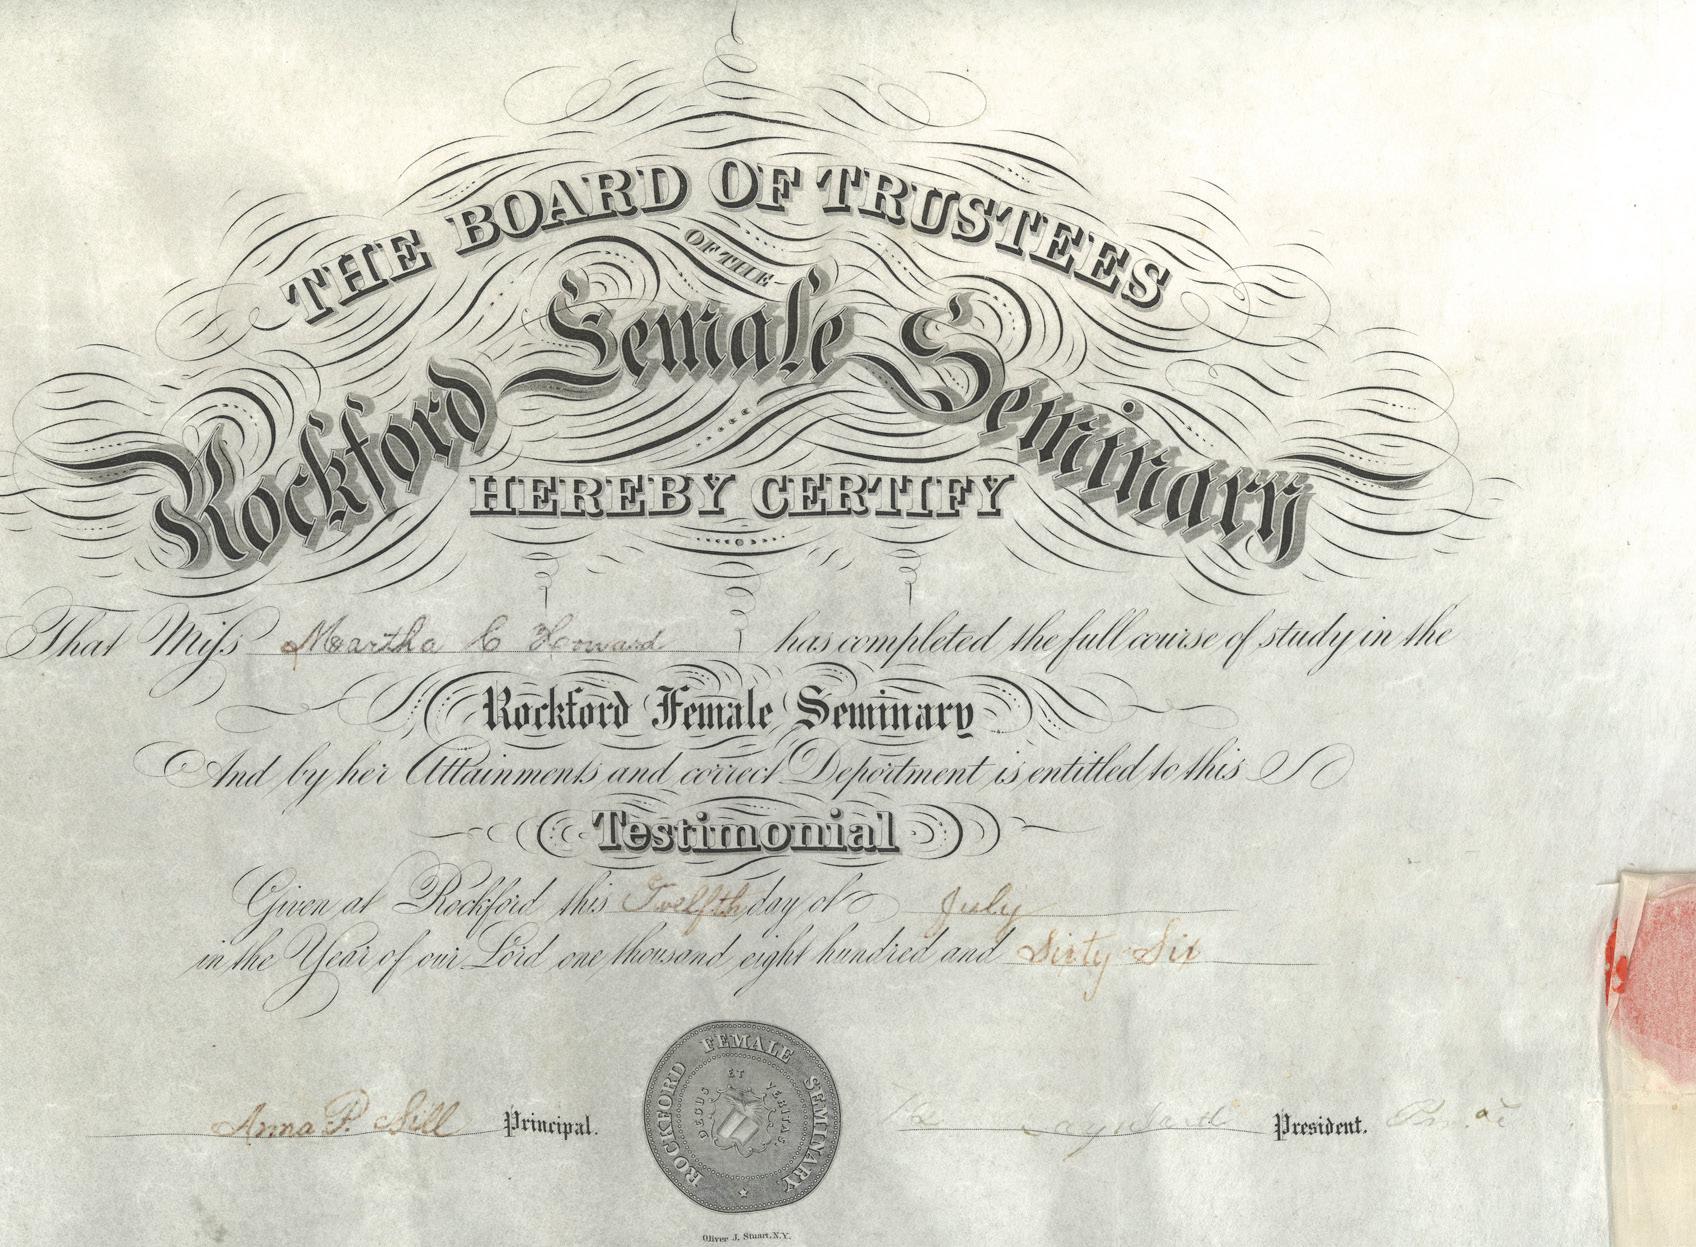 THE BOARD OF TRUSTEES
OF THE
Rockford Female Seminary
HEREBY CERTIFY
That Miſs Martha C Howard has completed the full course of study in the
Rockford Female Seminary
And by her Attainments and correct Deportment is entitled to this
Testimonial
Given at Rockford this Twelfth day of July
in the Year of our Lord one thousand eight hundred and Sixty Six
ROCKFORD FEMALE SEMINARY
DECUS ET VERITAS
Anna P. Sill Principal.
President.
Oliver J. Stuart, N.Y.